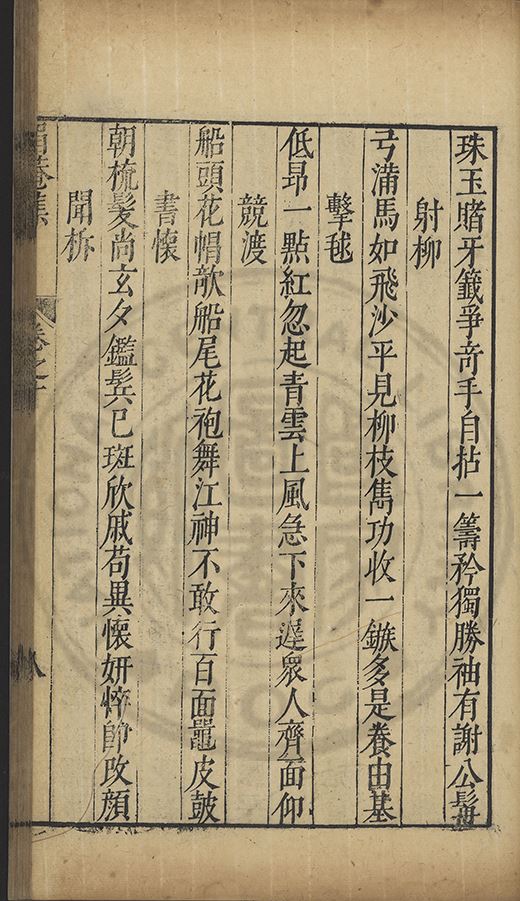 珠玉賭牙籤爭奇手自拈一籌矜獨勝袖有謝公髯
射柳
弓滿馬如飛沙平見柳枝雋功收一鏃多是養由基
擊毬
低昂一點紅忽起青雲上風急下來遲衆人齊面仰
競渡
船頭花帽欹船尾花袍舞江神不敢行百面鼉皮鼓
書懷
朝梳髮尚玄夕鑑鬂已斑欣戚苟異懷妍悴即改顔
聞柝
卷之
八